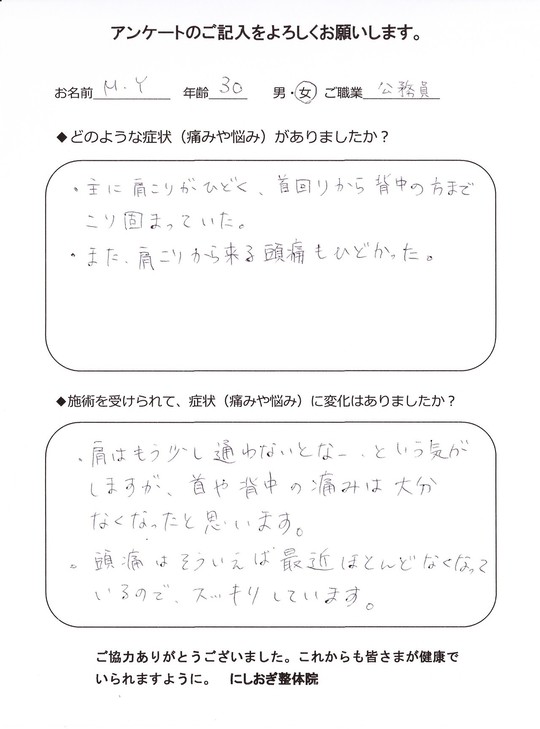 アンケートのご記入をよろしくお願いします。
お名前 M.Y 年齢 30 男・女 ご職業 公務員
◆どのような症状（痛みや悩み）がありましたか？
・主に肩こりがひどく、首回りから背中の方まで
こり固まっていた。
・また、肩こりから来る頭痛もひどかった。
◆施術を受けられて、症状（痛みや悩み）に変化はありましたか？
・肩はもう少し通わないとなー、という気が
しますが、首や背中の痛みは大分
なくなったと思います。
・頭痛はそういえば最近ほとんどなくなって
いるので、スッキリしています。
ご協力ありがとうございました。これからも皆さまが健康で
いられますように。 にしおぎ整体院